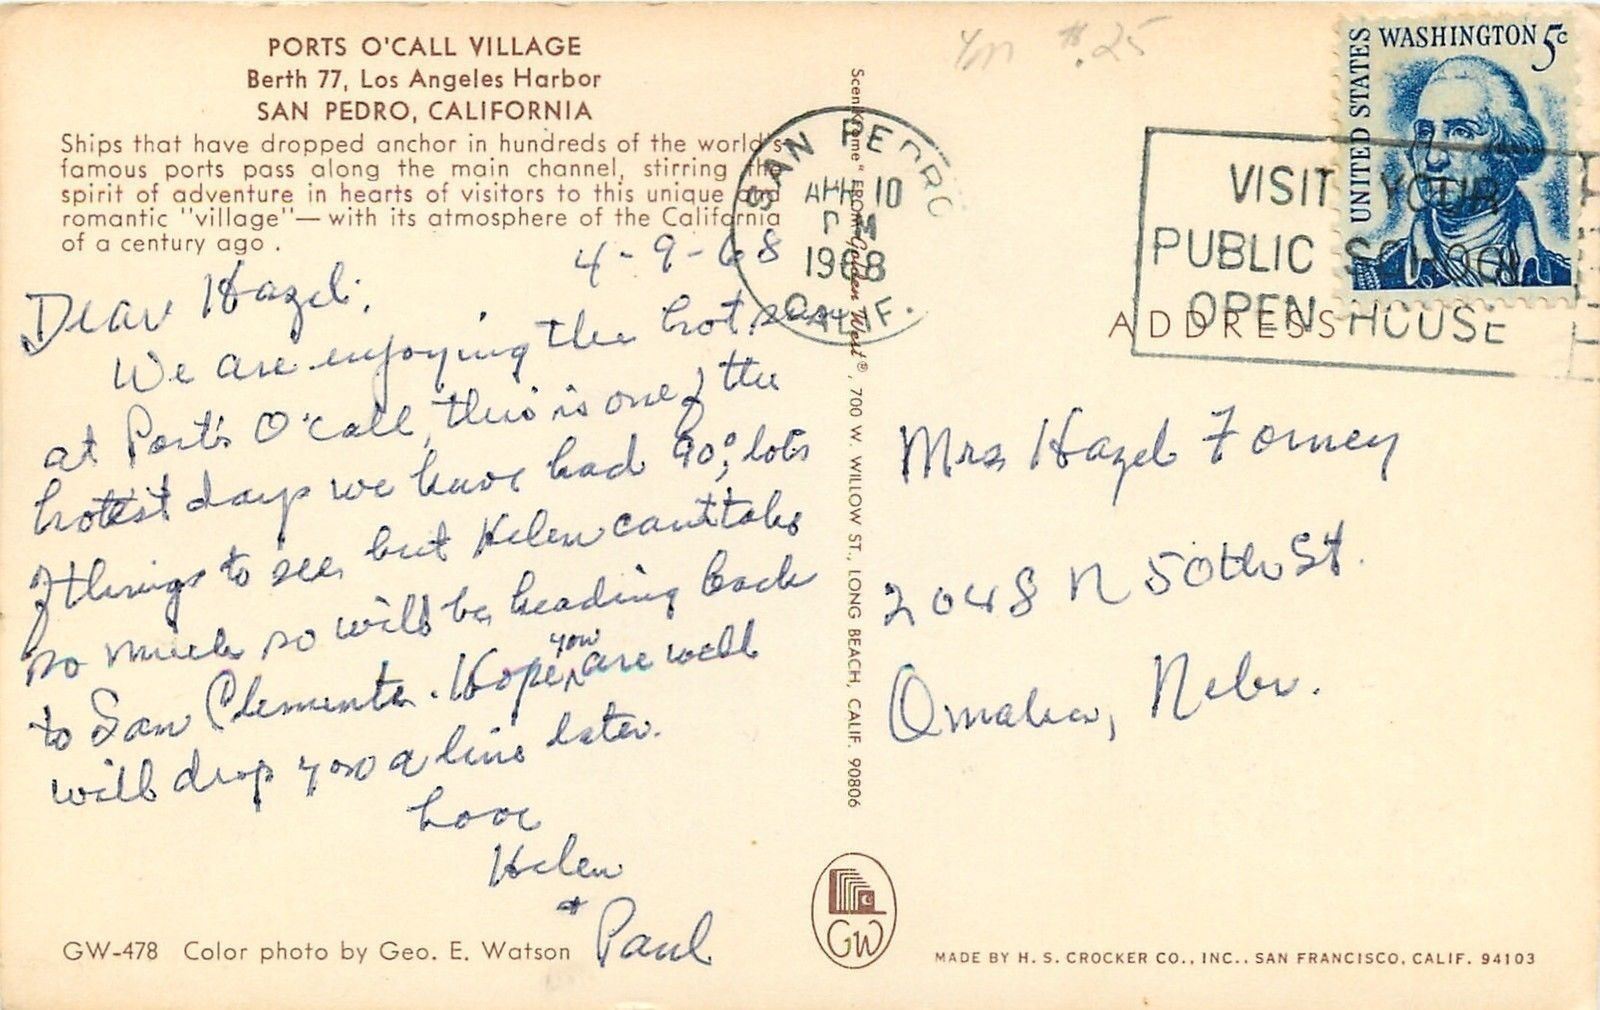 PORTS O'CALL VILLAGE
Berth 77, Los Angeles Harbor
SAN PEDRO, CALIFORNIA
Ships that have dropped anchor in hundreds of the world's
famous ports pass along the main channel, stirring the
spirit of adventure in hearts of visitors to this unique and
romantic "village" — with its atmosphere of the California
of a century ago .
4-9-68
Dear Hazel,
We are enjoying the hot sun
at Port's O'call, this is one of the
hottest days we have had 90°, lots
of things to see, but Helen can't take
so much so will be heading back
to San Clemente. Hope you are well
will drop you a line later.
Love
Helen
+ Paul
GW-478 Color photo by Geo. E. Watson
Scenikrome" FROM Golden West®, 700 W. WILLOW ST., LONG BEACH, CALIF. 90806
GW
$.25
SAN PEDRO
APR 10
PM
1968
CALIF.
VISIT YOUR
PUBLIC SCHOOL
OPEN HOUSE
UNITED STATES
WASHINGTON 5c
ADDRESS
Mrs Hazel Forney
2048 N 50th St.
Omaha, Nebr.
MADE BY H. S. CROCKER CO., INC., SAN FRANCISCO, CALIF. 94103